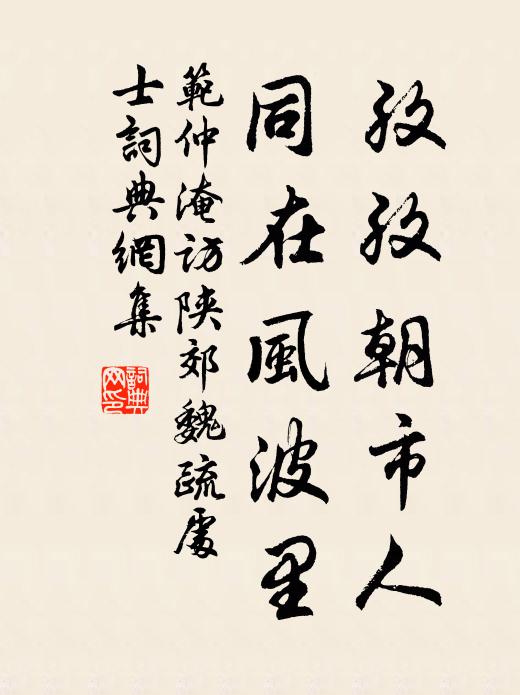 孜孜朝市人
同在風波里
範仲淹訪陝郊魏疏處
士詞典網集
詞典
网印